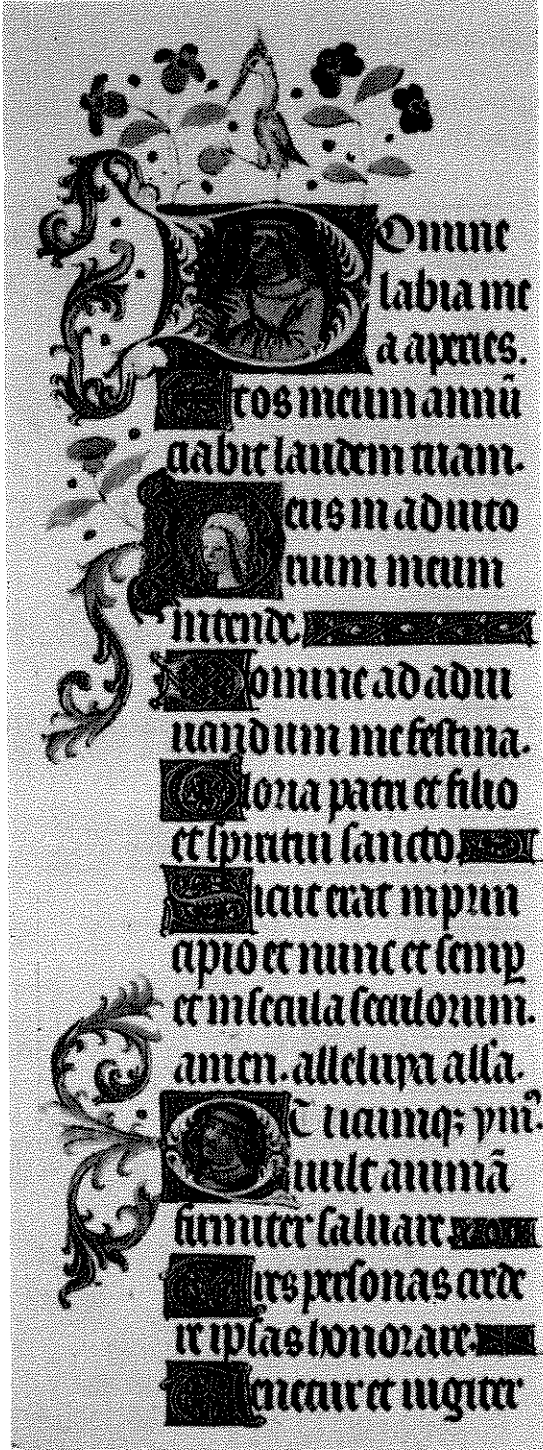 Domine
labia me
a aperies.
Et os meum annũ
ciabit laudem tuam.
Deus in adiuto
rium meum
intende.
Domine ad adiu
uandum me festina.
Gloria patri et filio
et spiritui sancto.
Sicut erat in prin
cipio et nunc et semꝑ
et in secula seculorum.
amen. alleluya alla.
Quicumq; ymꝰ.
uult animã
firmiter saluare
Tres personas crede
re ipsas honorare.
Tenetur et iugiter